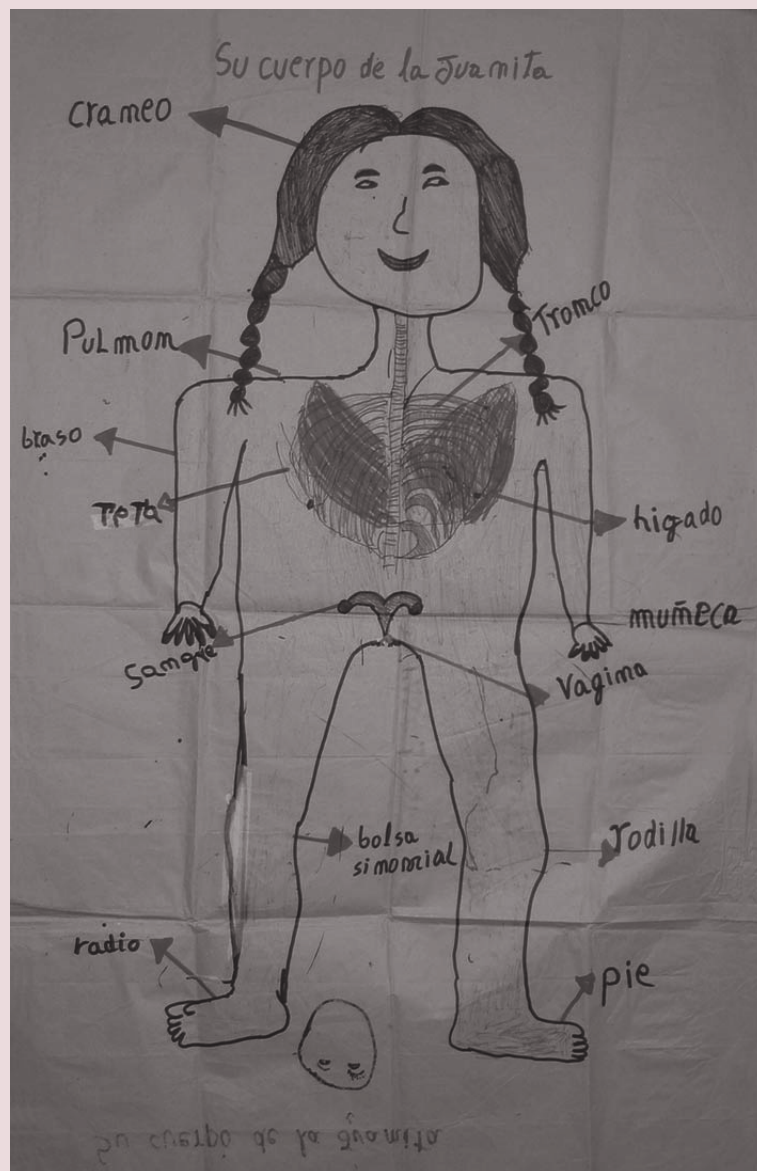 Su cuerpo de la Juamita
crameo
Tromco
PuLmom
braso
TeTa
higado
muñeca
Samgre
Vagima
bolsa
simomial
rodilla
radio
pie
Su cuerpo de la Juamita